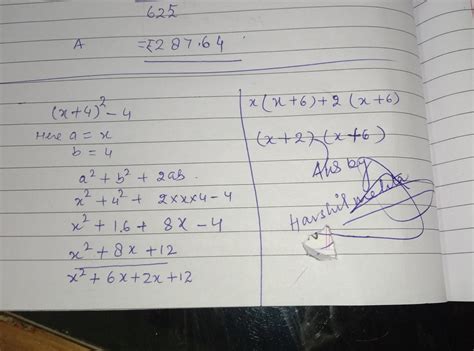 625
A = ₹287.64
(x+4)² - 4
Here a = x
b = 4
a² + b² + 2ab
x² + 4² + 2×x×4 - 4
x² + 16 + 8x - 4
x² + 8x + 12
x² + 6x + 2x + 12
x(x+6) + 2(x+6)
(x+2)(x+6)
Ans by
Harshil mehta